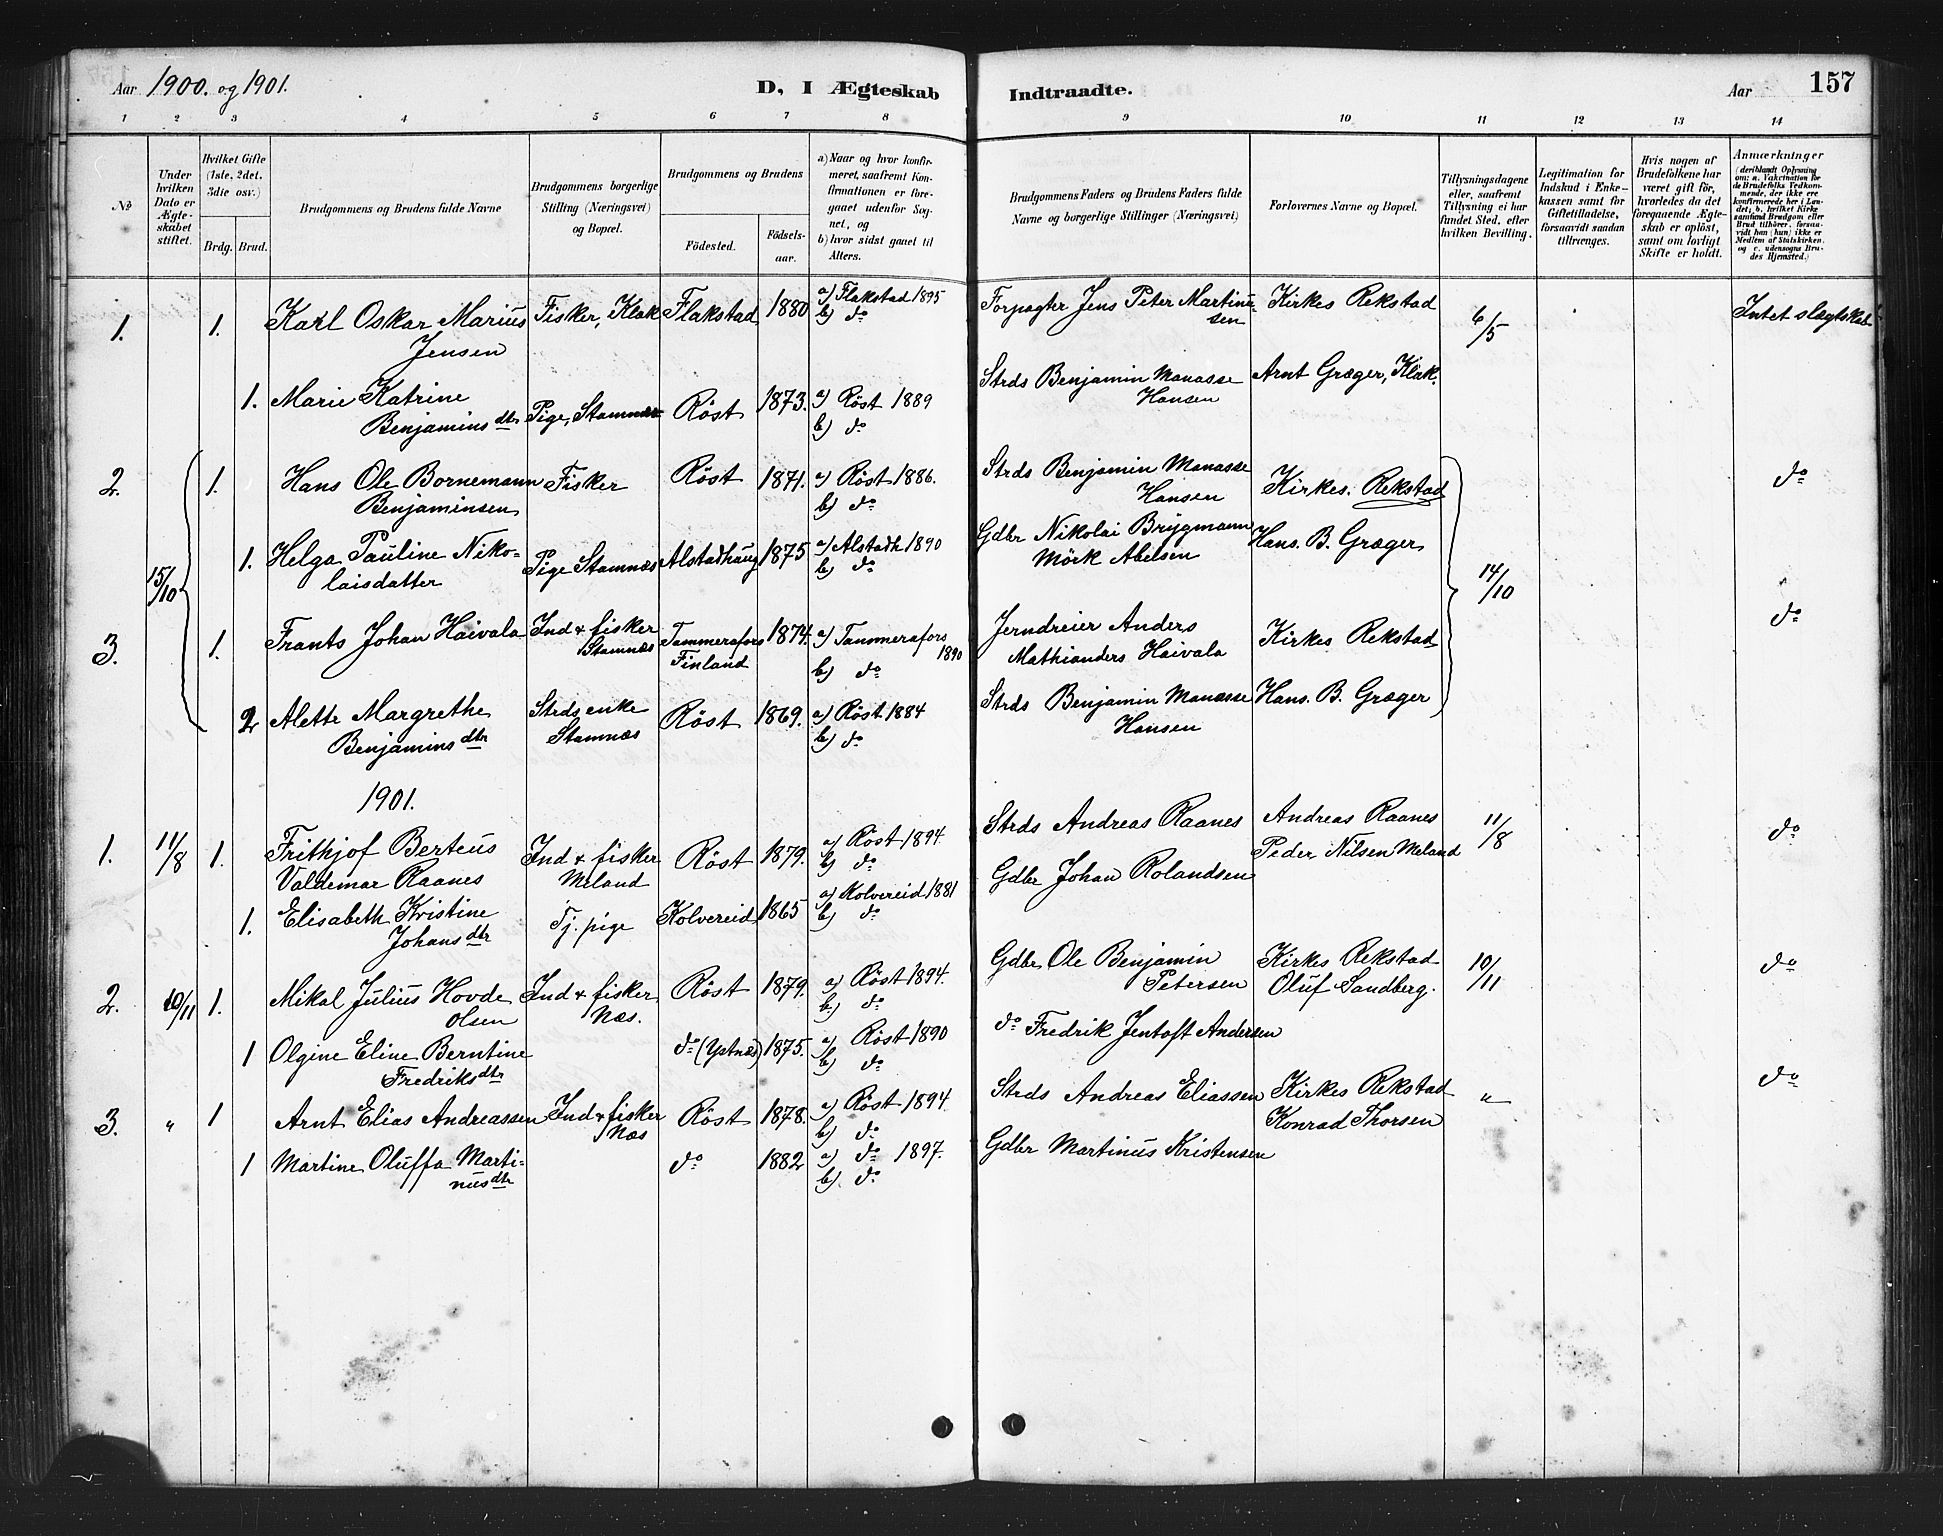 Aar 1900. og 1901.
D, I Ægteskab Indtraadte.
Aar
157
1 2 3 4 5 6 7 8 9 10 11 12 13 14
No
Under hvilken Dato er Ægteskabet stiftet.
Hvilket Gifte (1ste, 2det, 3die osv.)
Brdg. Brud.
Brudgommens og Brudens fulde Navne
Brudgommens borgerlige Stilling (Næringsvei) og Bopæl.
Brudgommens og Brudens
Födested. Födsels-aar.
a) Naar og hvor konfirmeret, saafremt Konfirmationen er foregaaet udenfor Sognet, og
b) hvor sidst gaaet til Alters.
Brudgommens Faders og Brudens Faders fulde Navne og borgerlige Stillinger (Næringsvei)
Forlovernes Navne og Bopæl.
Tillysningsdagene eller, saafremt Tillysning ei har fundet Sted, efter hvilken Bevilling.
Legitimation for Indskud i Enkekassen samt for Giftetilladelse, forsaavidt saadan tiltrænges.
Hvis nogen af Brudefolkene har været gift för, hvorledes da det foregaaende Ægteskab er oplöst, samt om lovligt Skifte er holdt.
Anmærkninger
(deriblandt Oplysning om: a. Vakcination for de Brudefolks Vedkommende, der ikke ere konfirmerede her i Landet; b. hvilket Kirkesamfund Brudgom eller Brud tilhörer, forsaavidt han (hun) ikke er Medlem af Statskirken, og c. udensogns Brudes Hjemsted.)
1. 1. Karl Oskar Marius Fisker, Klak Flakstad 1880 a) Flakstad 1895 Forpagter Jens Peter Martin- Kirkes. Rekstad 6/5 Intet slægtskab
Jensen b) do sen
1. Marie Katrine Pige, Stamnæs Röst 1873. a) Röst 1889 Strds Benjamin Manasse Arnt Græger, Klak.
Benjamins dtr b) do Hansen
2. 15/10 1. Hans Ole Bornemann Fisker Röst 1871. a) Röst 1886. Strds Benjamin Manasse Kirkes. Rekstad 14/10 do
Benjaminsen b) do Hansen
1. Helga Pauline Niko- Pige Stamnæs Alstadhaug 1875 a) Alstadh 1890 Gdbr Nikolai Brygmann Hans. B. Græger
laisdatter b) do Mörk Abelsen
3. 1. Frants Johan Haivala Ind & fisker Tammerafors 1874. a) Tammerafors 1890 Jerndreier Anders Kirkes Rekstad do
Stamnæs Finland b) do Mathianders Haivala
2 Alette Margrethe Strds enke Röst 1869. a) Röst 1884 Strds Benjamin Manasse Hans. B. Græger
Benjamins dtr Stamnæs b) do Hansen
1901.
1. 11/8 1. Frithjof Berteus Ind & fisker Röst 1879. a) Röst 1894. Strds Andreas Raanes Andreas Raanes 11/8 do
Valdemar Raanes Meland b) do Peder Nilsen Meland
1. Elisabeth Kristine Tj. pige Kolvereid 1865 a) Kolvereid 1881 Gdbr Johan Rolandsen
Johans dtr b) do
2. 10/11 1. Mikal Julius Hovde Ind & fisker Röst 1879. a) Röst 1894. Gdbr Ole Benjamin Kirkes Rekstad 10/11 do
Olsen Næs. b) do Petersen Oluf Sandberg.
1 Olgine Eline Berntine do (Ystnæs) 1875. a) Röst 1890 do Fredrik Jentoft Andersen
Fredriks dtr b) do
3. " 1 Arnt Elias Andreassen Ind & fisker Röst 1878. a) Röst 1894. Strds Andreas Eliassen Kirkes Rekstad " do
Næs b) do Konrad Thorsen
1 Martine Oluffa Marti- do 1882 a) do 1897. Gdbr Martinus Kristensen
nus dtr b) do